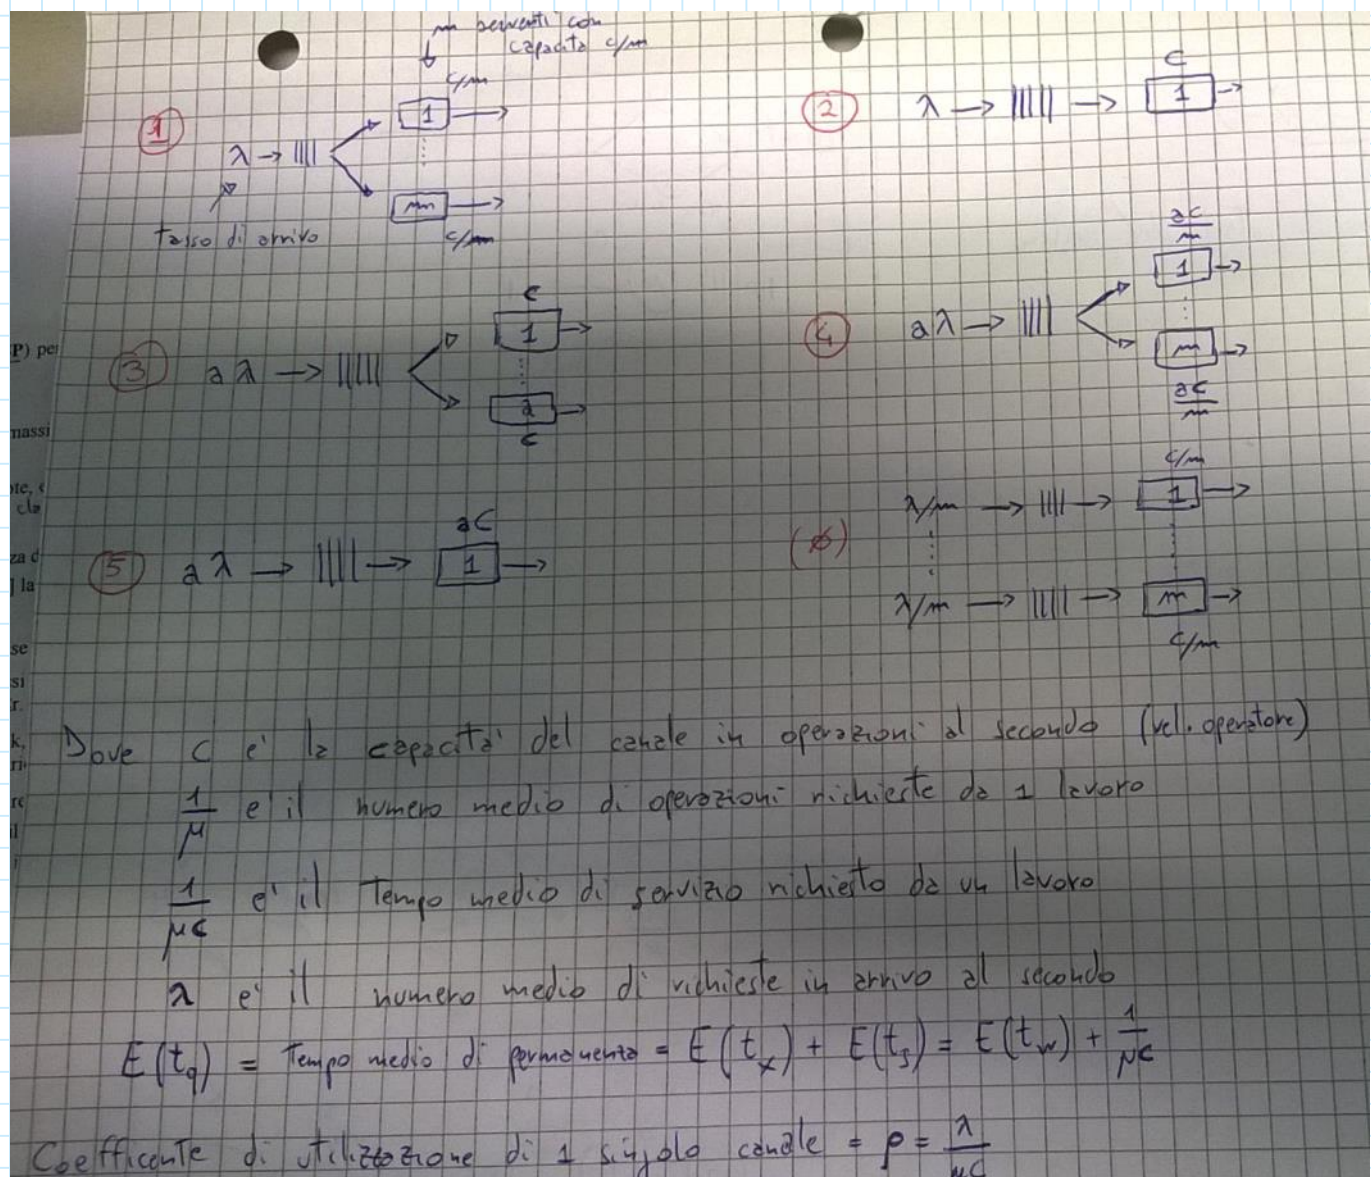 m serventi con
capacità c/m
c/m
1
1
λ → |||| 
m
c/m
tasso di arrivo
2
λ → ||||| →
C
1
3
aλ → |||||
C
1
a
C
4
aλ → ||||
aC/m
1
m
aC/m
5
aλ → |||| →
aC
1
(6)
λ/m → |||| →
c/m
1
λ/m → ||||| →
m
c/m
P) per
massi
cla
za d
la
se
si
r.
k,
Dove C e' la capacità del canale in operazioni al secondo (vel. operatore)
1/μ e' il numero medio di operazioni richieste da 1 lavoro
1/μC e' il tempo medio di servizio richiesto da un lavoro
λ e' il numero medio di richieste in arrivo al secondo
E(tq) = Tempo medio di permanenza = E(tx) + E(ts) = E(tw) + 1/μC
Coefficente di utilizzazione di 1 singolo canale = ρ = λ/μC